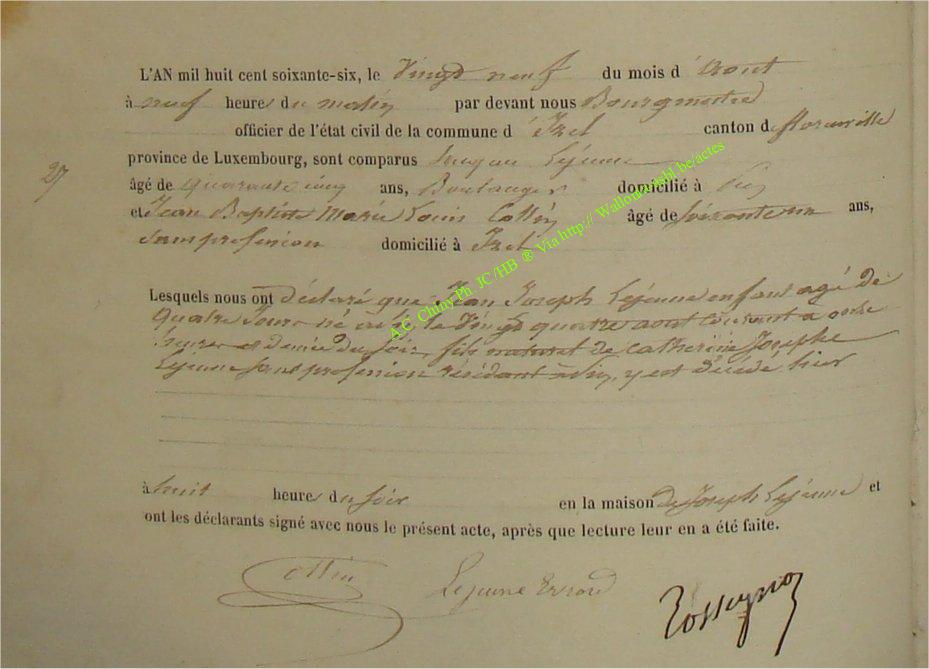 L'AN mil huit cent soixante-six, le Vingt neuf du mois d'Aout
à neuf heures du matin par devant nous Bourgmestre
officier de l'état civil de la commune d'Izel canton de florenville
27
province de Luxembourg, sont comparus Lejeune
âgé de quarante cinq ans, Boulanger domicilié à Pin
et Jean Baptiste Marie Louis Collin âgé de soixante un ans,
sans profession domicilié à Izel
Lesquels nous ont déclaré que Jean Joseph Lejeune enfant agé de
quatre jours né à le Vingt quatre aout courant à onze
heures et demie du soir, fils naturel de Catherine Josephe
Lejeune sans profession résidant à Pin, y est décédé hier
à huit heures du soir en la maison de Joseph Lejeune et
ont les déclarants signé avec nous le présent acte, après que lecture leur en a été faite.
Lejeune
A.C. Chiny Ph JC/HB ® Via http:// Wallonia
be/actes